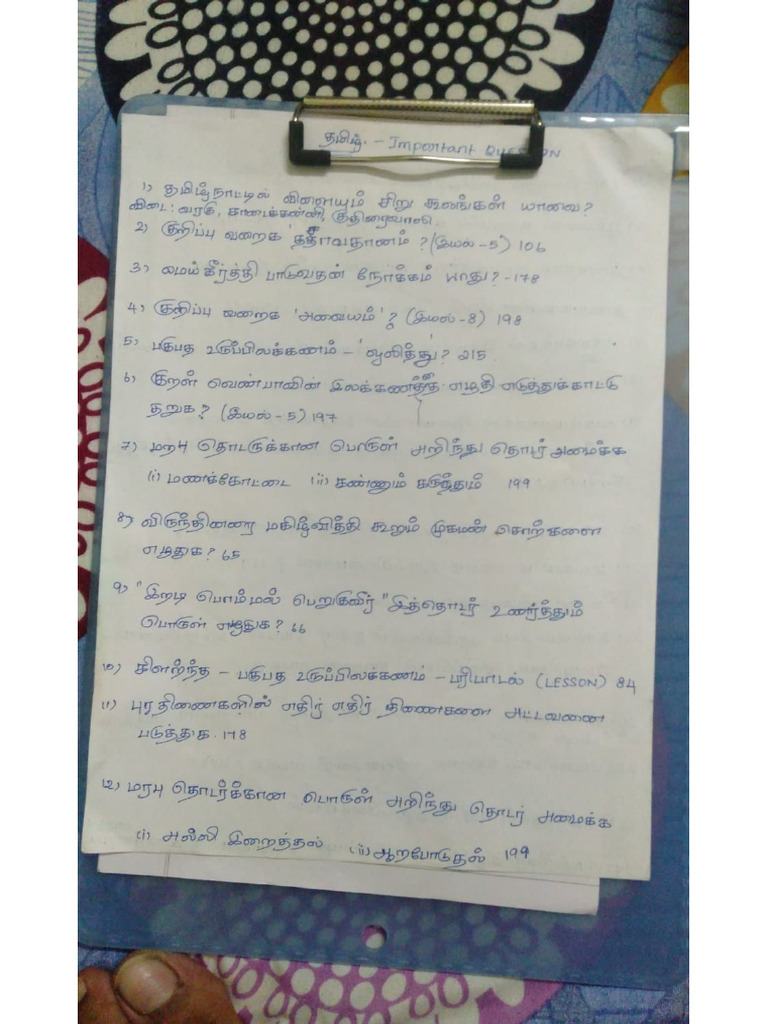 தமிழ். - Important QUESTION
1) தமிழ்நாட்டில் விளையும் சிறு கூலங்கள் யாவை?
விடை: வரகு, காடைக்கண்ணி, குதிரைவாலி.
2) குறிப்பு வரைக 'தசாவதானம்'? (இயல் -5) 106
3) மெய்கீர்த்தி பாடுவதன் நோக்கம் யாது? -178
4) குறிப்பு வரைக 'அவையம்'? (இயல் -8) 198
5) பகுபத உறுப்பிலக்கணம் - 'ஒலித்து'? 215
6) குறள் வெண்பாவின் இலக்கணத்தை எழுதி எடுத்துக்காட்டு
தறுக? (இயல் -5) 197
7) மறபு தொடருக்கான பொருள் அறிந்து தொடர் அமைக்க
(i) மணக்கோட்டை (ii) கண்ணும் கருத்தும் 199
8) விருந்தினரை மகிழ்வித்து கூறும் முகமன் சொற்களை
எழுதுக? 65
9) "இறடி பொம்மல் பெறுகுவிர்" இத்தொடர் உணர்த்தும்
பொருள் எழுதுக? 66
10) கிளர்ந்த - பகுபத உறுப்பிலக்கணம் - பரிபாடல் (LESSON) 84
11) புறதிணைகளில் எதிர் எதிர் திணைகளை அட்டவணை
படுத்துக. 178
12) மரபு தொடர்க்கான பொருள் அறிந்து தொடர் அமைக்க
(i) அள்ளி இறைத்தல் (ii) ஆறபோடுதல் 199